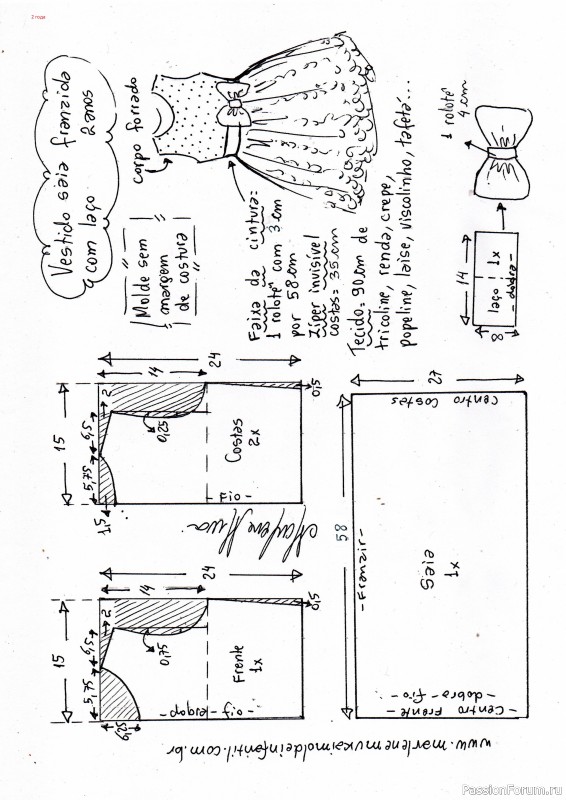 2 года
Vestido saia franzida
2 anos
com laço
corpo forrado
Molde sem
margem
de costura
Faixa da cintura:
1 rolotê com 3 cm
por 58 cm
Zíper invisível
costas = 35 cm
Tecido = 90 cm de
tricoline, renda, crepe,
popeline, laise, viscolinho, tafetá...
1 rolotê
4 cm
14
laço 1x
- dobra -
8
15
24
14
5,75
6,5
2
1,5
0,25
Costas
2x
- Fio -
0,5
15
24
14
5,75
6,5
2
6,25
0,75
Frente
1x
dobra - fio -
0,5
58
27
- Franzir -
Saia
1x
Centro Costas
- Centro Frente -
- dobra - fio -
www.marlenemukaimoldeinfantil.com.br
PassionForum.ru